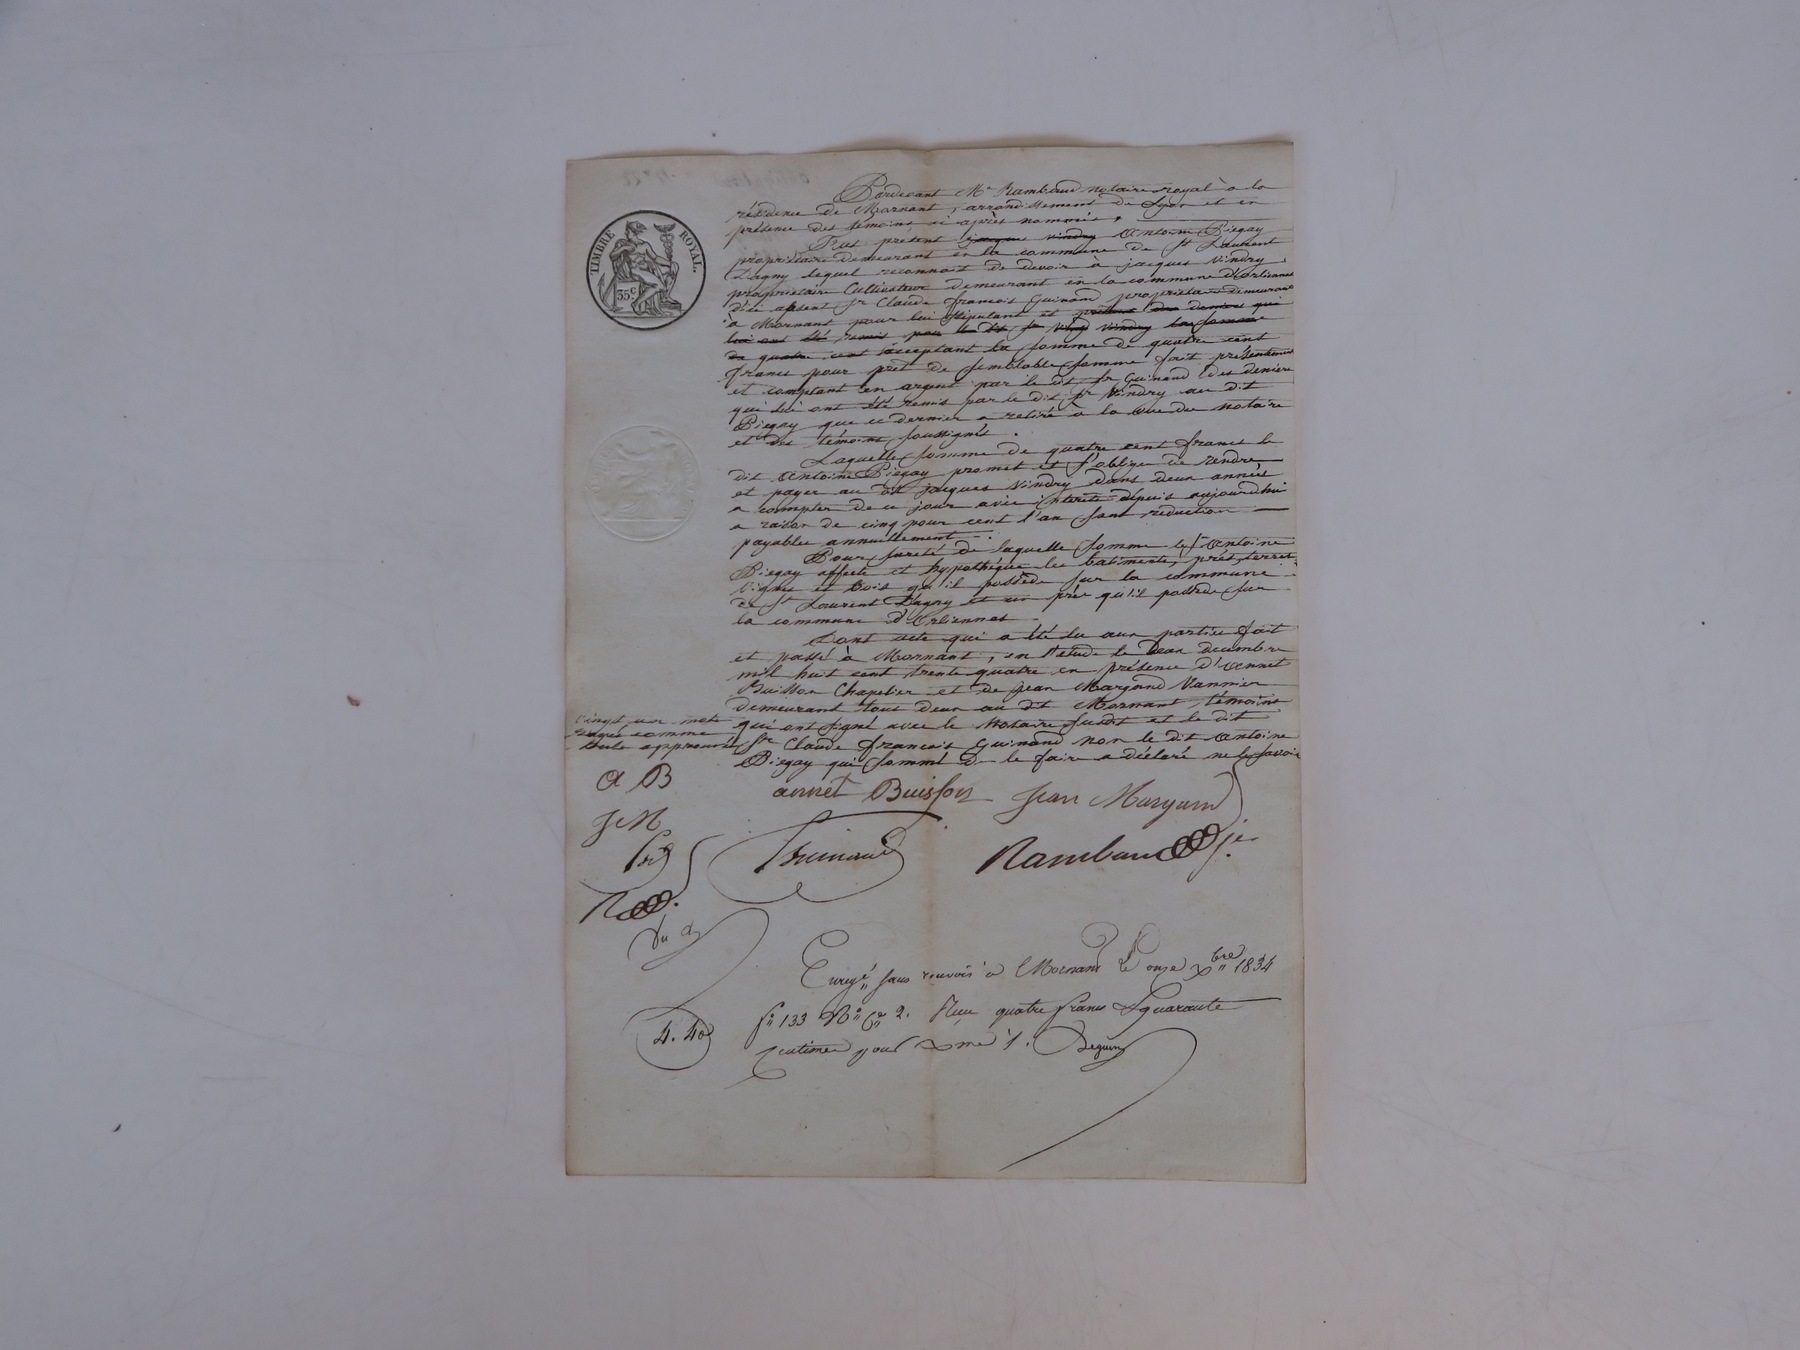 TIMBRE ROYAL.
35 c
Pardevant Me Rambaud notaire royal à la
résidence de Mornant, arrondissement de Lyon et en
présence des témoins ci après nommés,
Fut présent jacques vindry Antoine Piegay
propriétaire demeurant en la commune de St Laurent
Dagny lequel reconnoit de devoir à jacques Vindry
propriétaire Cultivateur demeurant en la commune d'Orliennas
d'ici absent Sr Claude françois Guinand propriétaire demeurant
à Mornant pour lui stipulant et présent des deniers qui
lui ont été remis par le dit Sr Vindry la somme
de quatre cent acceptant la somme de quatre cent
francs pour prêt de semblable somme fait présentement
et comptant en argent par le dit Sr Guinand des deniers
qui lui ont été remis par le dit Sr Vindry au dit
Piegay que ce dernier a retiré à la vue du notaire
et des témoins soussignés.
Laquelle somme de quatre cent francs le
dit Antoine Piegay promet et s'oblige de rendre
et payer au dit jacques Vindry dans deux années
a compter de ce jour avec intérêts depuis aujourdhui
a raison de cinq pour cent l'an sans reduction
payables annuellement.
Pour sureté de laquelle somme le Sr Antoine
Piegay affecte et hypothéque les batiments, prés, terres
vignes et bois qu'il possède sur la commune
de St Laurent Dagny et un prés qu'il possède sur
la commune d'Orliennas.
Dont acte qui a été lu aux parties fait
et passé à Mornant, en l'étude le deux decembre
mil huit cent trente quatre en présence d'annet
Buisson Chapelier et de jean Margand Vannier
demeurant tous deux au dit Mornant témoins
qui ont signé avec le Notaire susdt et le dit
Sr Claude françois Guinand non le dit Antoine
Piegay qui sommé de le faire a déclaré ne le savoir
vingt un mots
rayés comme
nuls approuvés
A B
J M
annet Buisson Jean Margand
Guinand Rambaud
Enregé sans renvois à Mornant le onze xbre 1834
fo 133 Ro Ce 2. Reçu quatre francs & quarante
centimes pour xme 1. Seguin
4. 40